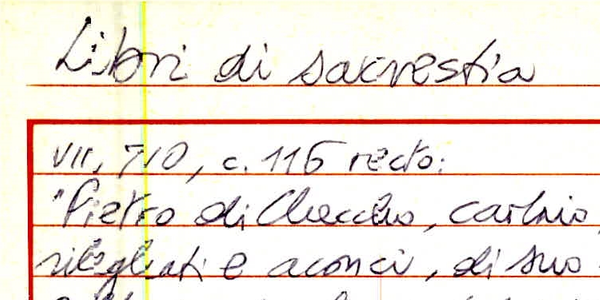 Libri di sacrestia
VII, 710, c. 116 recto:
"Pietro di Checcho, cartaio,
rilegati e aconci, di suo